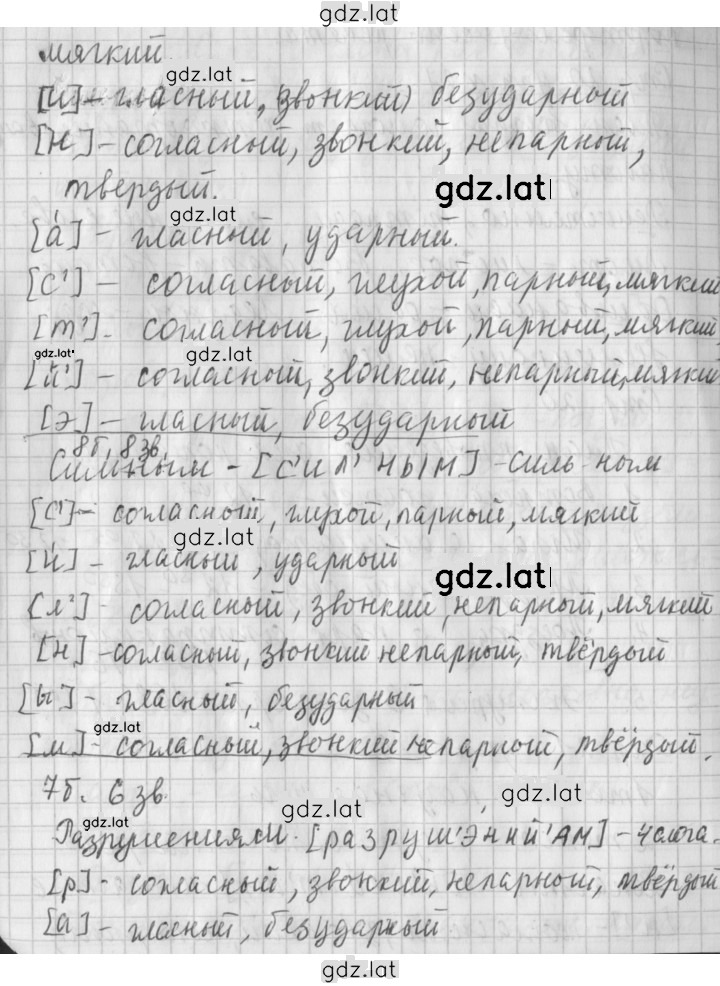 gdz.lat
мягкий.
gdz.lat
[и] - гласный, (звонкий) безударный
[н] - согласный, звонкий, непарный,
твердый.
gdz.lat
gdz.lat
[а́] - гласный, ударный.
[с'] - согласный, глухой, парный, мягкий
[т'] - согласный, глухой, парный, мягкий
gdz.lat
gdz.lat
[й'] - согласный, звонкий, непарный, мягкий
[э] - гласный, безударный
8б, 8зв.
Сильным - [с'ил'ным] - силь-ным
[с'] - согласный, глухой, парный, мягкий
gdz.lat
[и́] - гласный, ударный
gdz.lat
[л'] - согласный, звонкий, непарный, мягкий
[н] - согласный, звонкий непарный, твёрдый
[ы] - гласный, безударный
gdz.lat
[м] - согласный, звонкий непарный, твёрдый.
7б. 6 зв.
gdz.lat
gdz.lat
gdz.lat
Разрушениями. [разруш'эний'ам] - 4 слога.
[р] - согласный, звонкий, непарный, твёрдый
[а] - гласный, безударный
gdz.lat